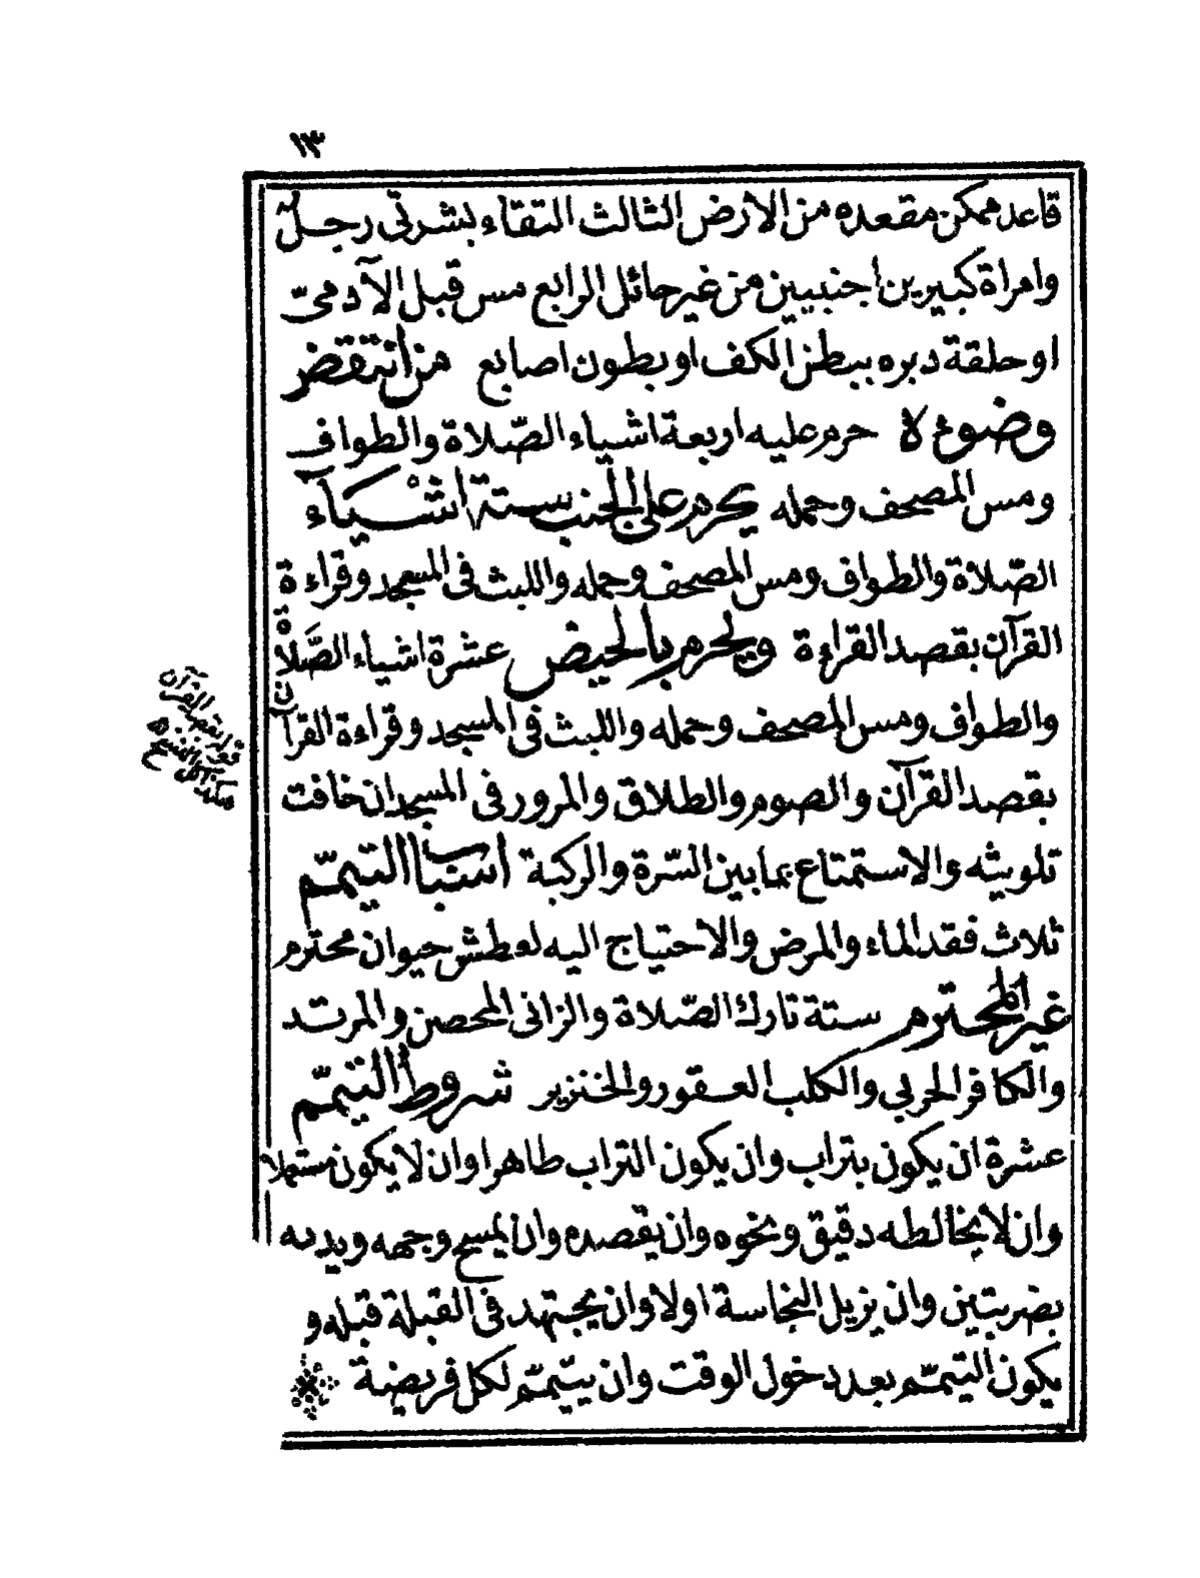 ١٣
قاعد ممكن مقعده من الارض الثالث التقاء بشرتي رجل
وامراة كبيرين اجنبيين من غير حائل الرابع مس قبل الآدمىّ
او حلقة دبره ببطن الكف او بطون اصابع من انتقض
وضوءه حرم عليه اربعة اشياء الصّلاة والطواف
ومس المصحف وحمله يحرم على الجنب ستة اشياء
الصّلاة والطواف ومس المصحف وحمله واللبث فى المسجد وقراءة
القرآن بقصد القراءة ويحرم بالحيض عشرة اشياء الصَّلاة
والطواف ومس المصحف وحمله واللبث فى المسجد وقراءة القرآن
بقصد القرآن والصوم والطلاق والمرور فى المسجد ان خافت
تلويثه والاستمتاع بما بين السّرة والركبة اسباب التيمّم
ثلاث فقد الماء والمرض والاحتياج اليه لعطش حيوان محترم
غير المحترم ستة تارك الصّلاة والزانى المحصن والمرتد
والكافر الحربي والكلب العقور والخنزير شروط التيمّم
عشرة ان يكون بتراب وان يكون التراب طاهرا وان لا يكون مستعملا
وان لا يخالطه دقيق ونحوه وان يقصده وان يمسح وجهه ويديه
بضربتين وان يزيل النجاسة اولا وان يجتهد فى القبلة قبله و
يكون التيمّم بعد دخول الوقت وان يتيمّم لكل فريضة
قوله بقصد القرآن